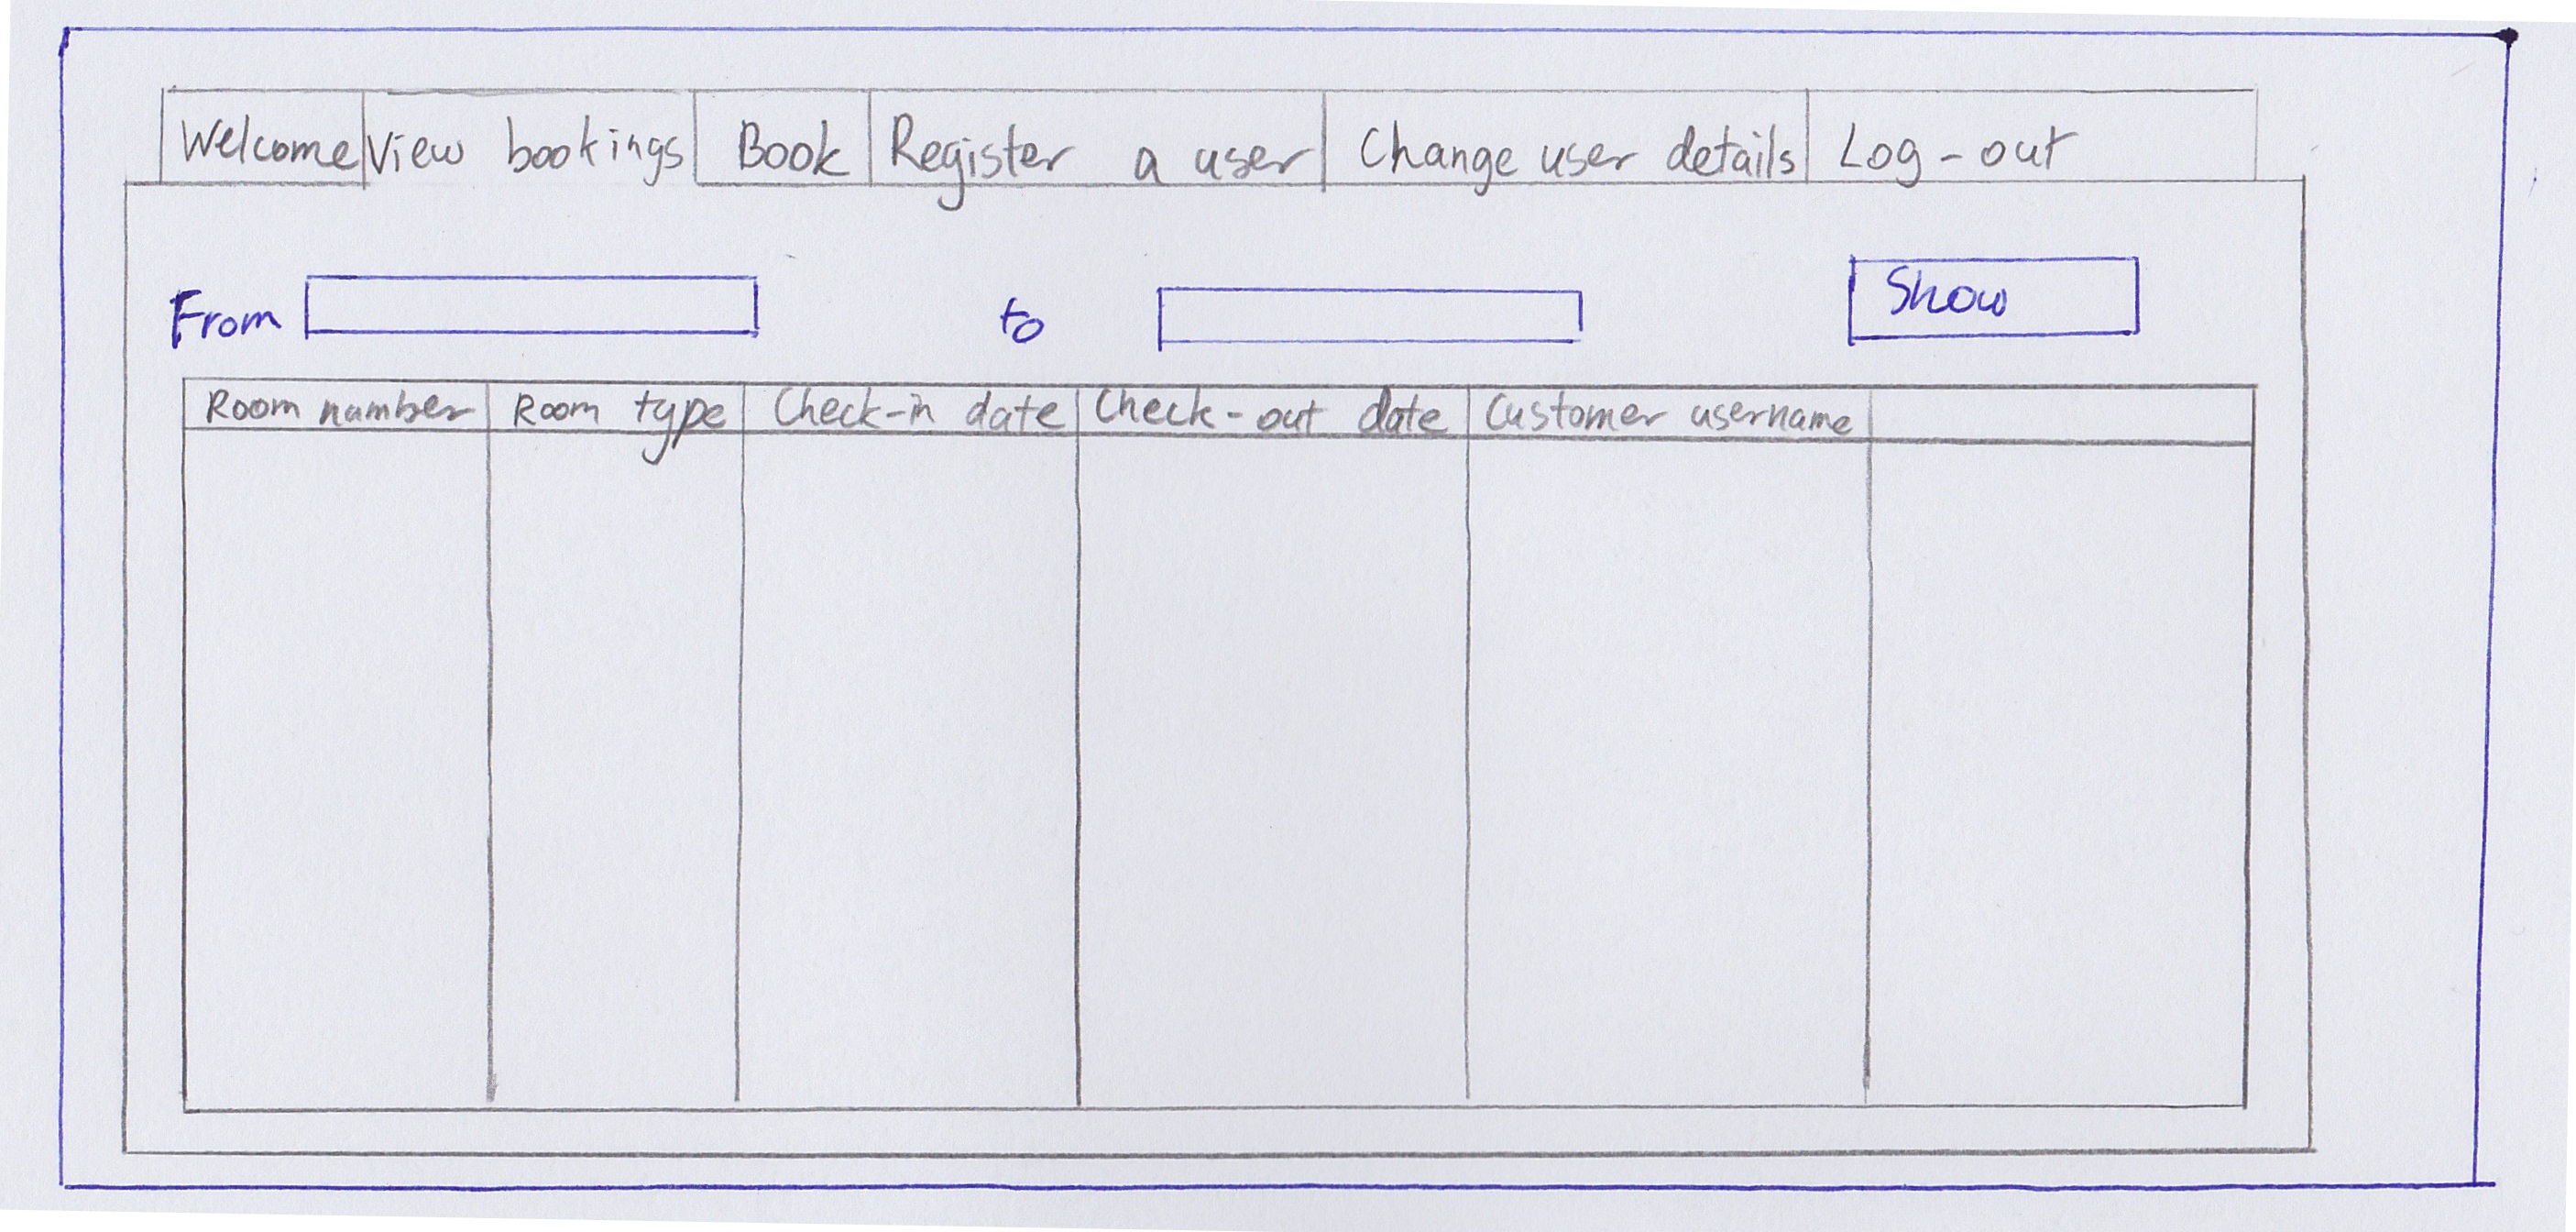 Welcome View bookings Book Register a user Change user details Log-out
From to Show
Room number Room type Check-in date Check-out date Customer username